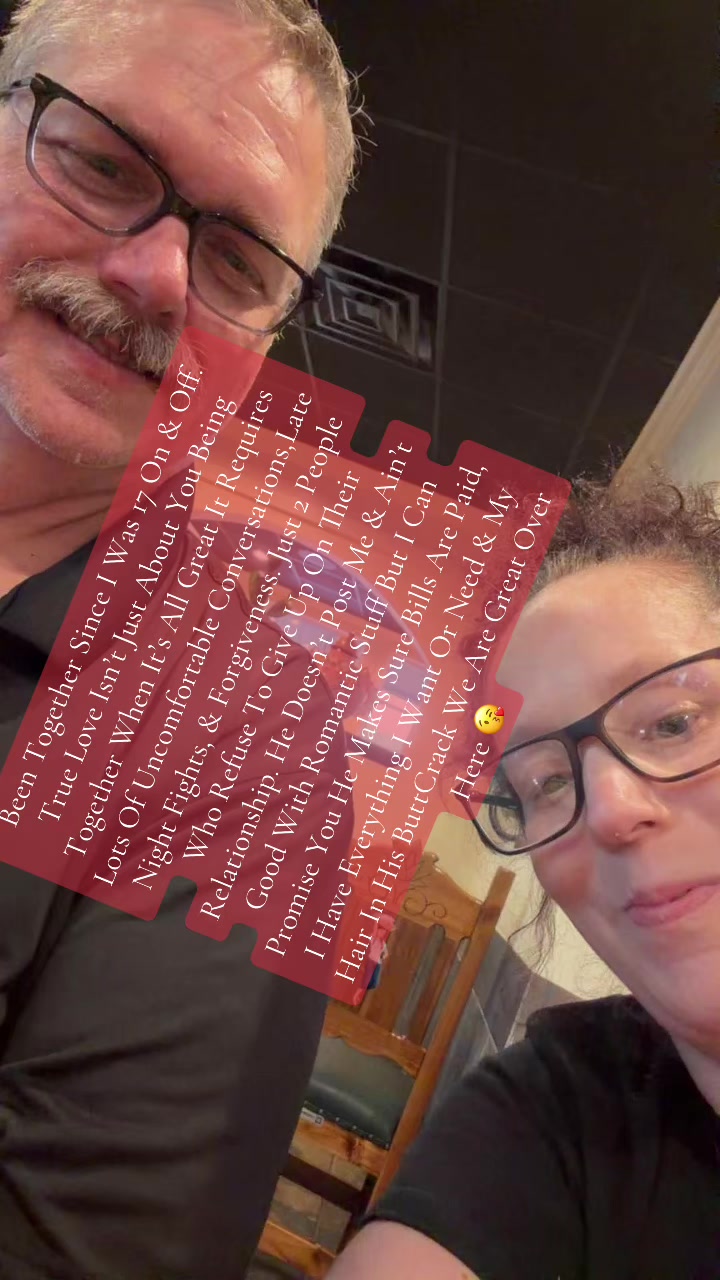 Been Together Since I Was 17 On & Off.
True Love Isn't Just About You Being
Together When It's All Great It Requires
Lots Of Uncomfortable Conversations,Late
Night Fights, & Forgiveness. Just 2 People
Who Refuse To Give Up On Their
Relationship. He Doesn't Post Me & Ain't
Good With Romantic Stuff But I Can
Promise You He Makes Sure Bills Are Paid,
I Have Everything I Want Or Need & My
Hair In His ButtCrack We Are Great Over
Here 😘